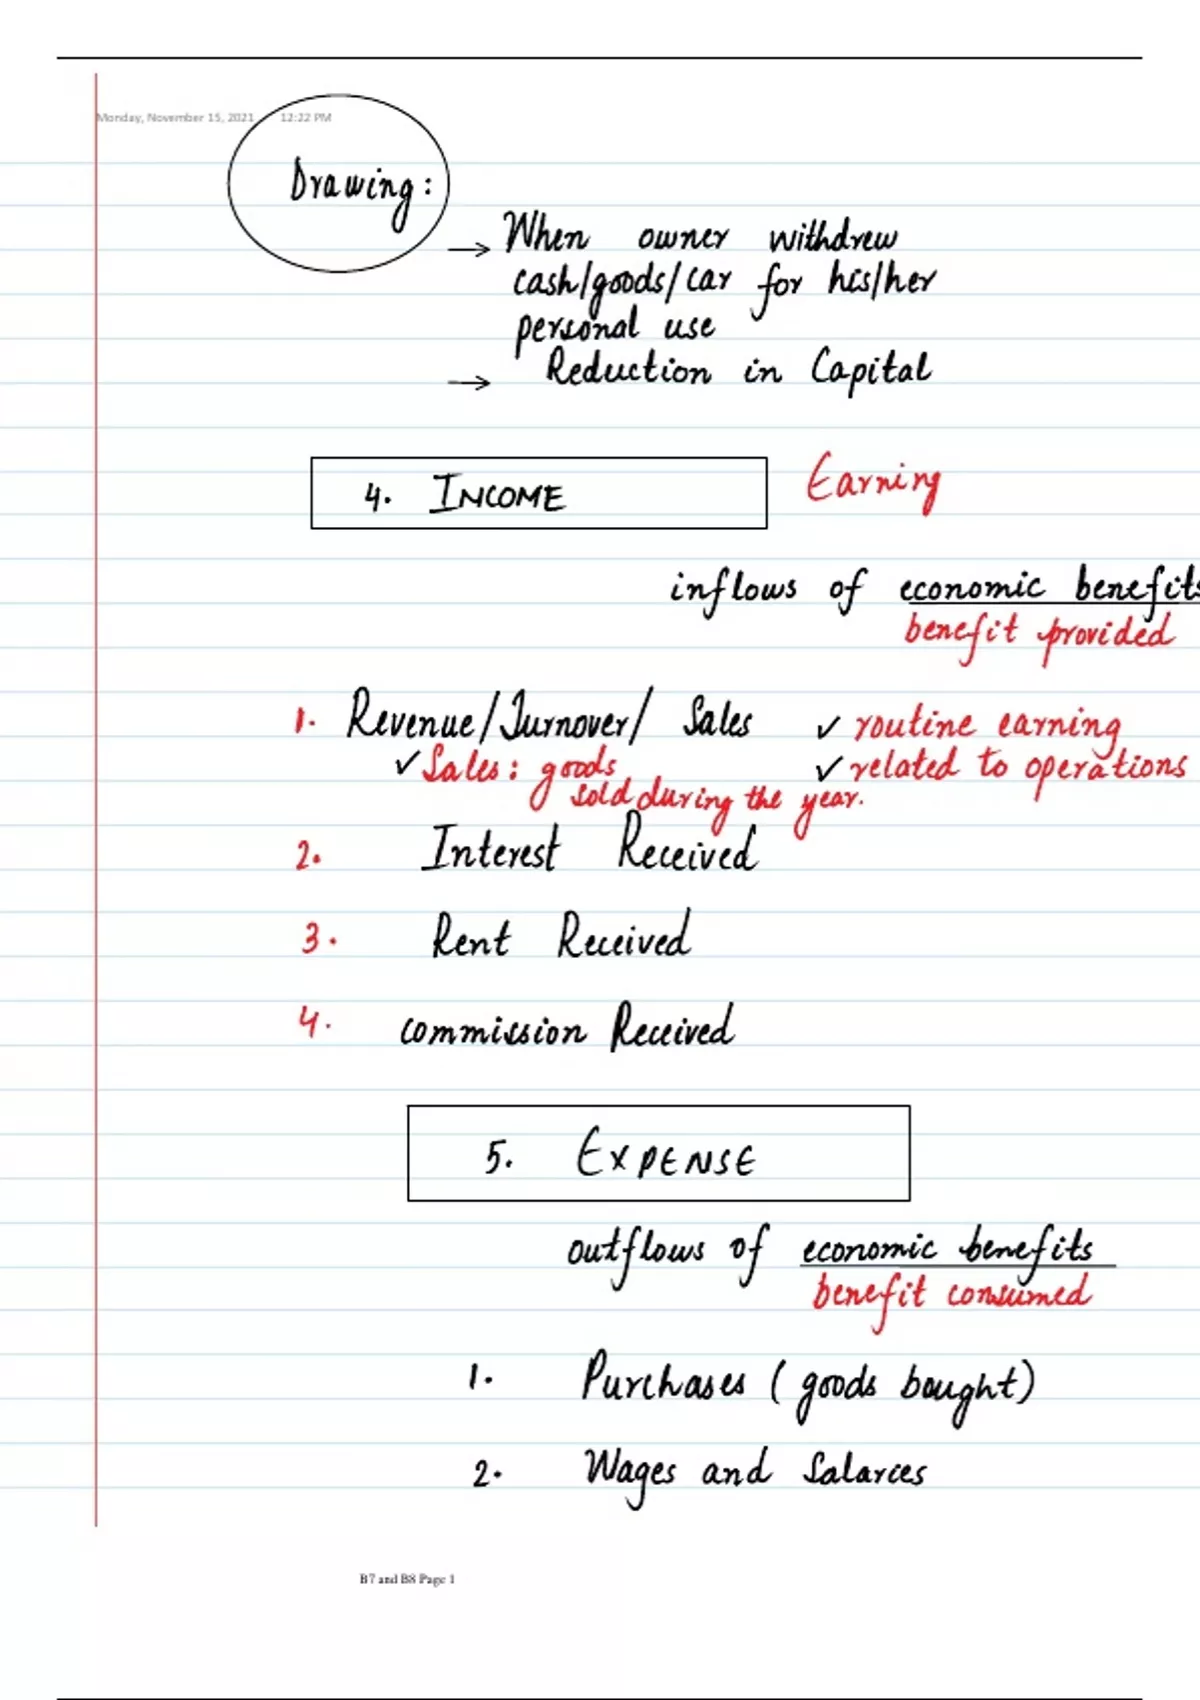 Monday, November 15, 2021 12:22 PM
Drawing:
→ When owner withdrew
cash/goods/car for his/her
personal use
→ Reduction in Capital
4. INCOME Earning
inflows of economic benefits
benefit provided
1. Revenue/Turnover/ Sales ✓ routine earning
✓ Sales: goods ✓ related to operations
sold during the year.
2. Interest Received
3. Rent Received
4. commission Received
5. EXPENSE
outflows of economic benefits
benefit consumed
1. Purchases (goods bought)
2. Wages and Salaries
B7 and B8 Page 1